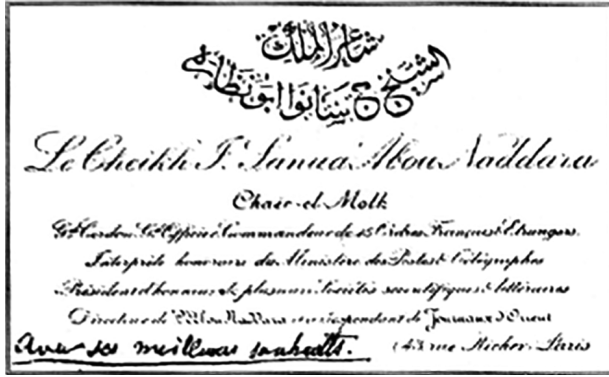 شاعر الملك
الشيخ ج سانوا ابو نظارة
Le Cheikh J. Sanua Abou Naddara
Chaïr-el-Molk
Gd. Cordon, Gd. Officier, Commandeur de 15 Ordres Français & Etrangers.
Interprète honoraire du Ministère des Postes & Télégraphes
Président d'honneur de plusieurs Sociétés scientifiques & littéraires
Directeur de l'Abou Naddara et correspondant de Journaux d'Orient
avec ses meilleurs souhaits.
(43, rue Richer. Paris